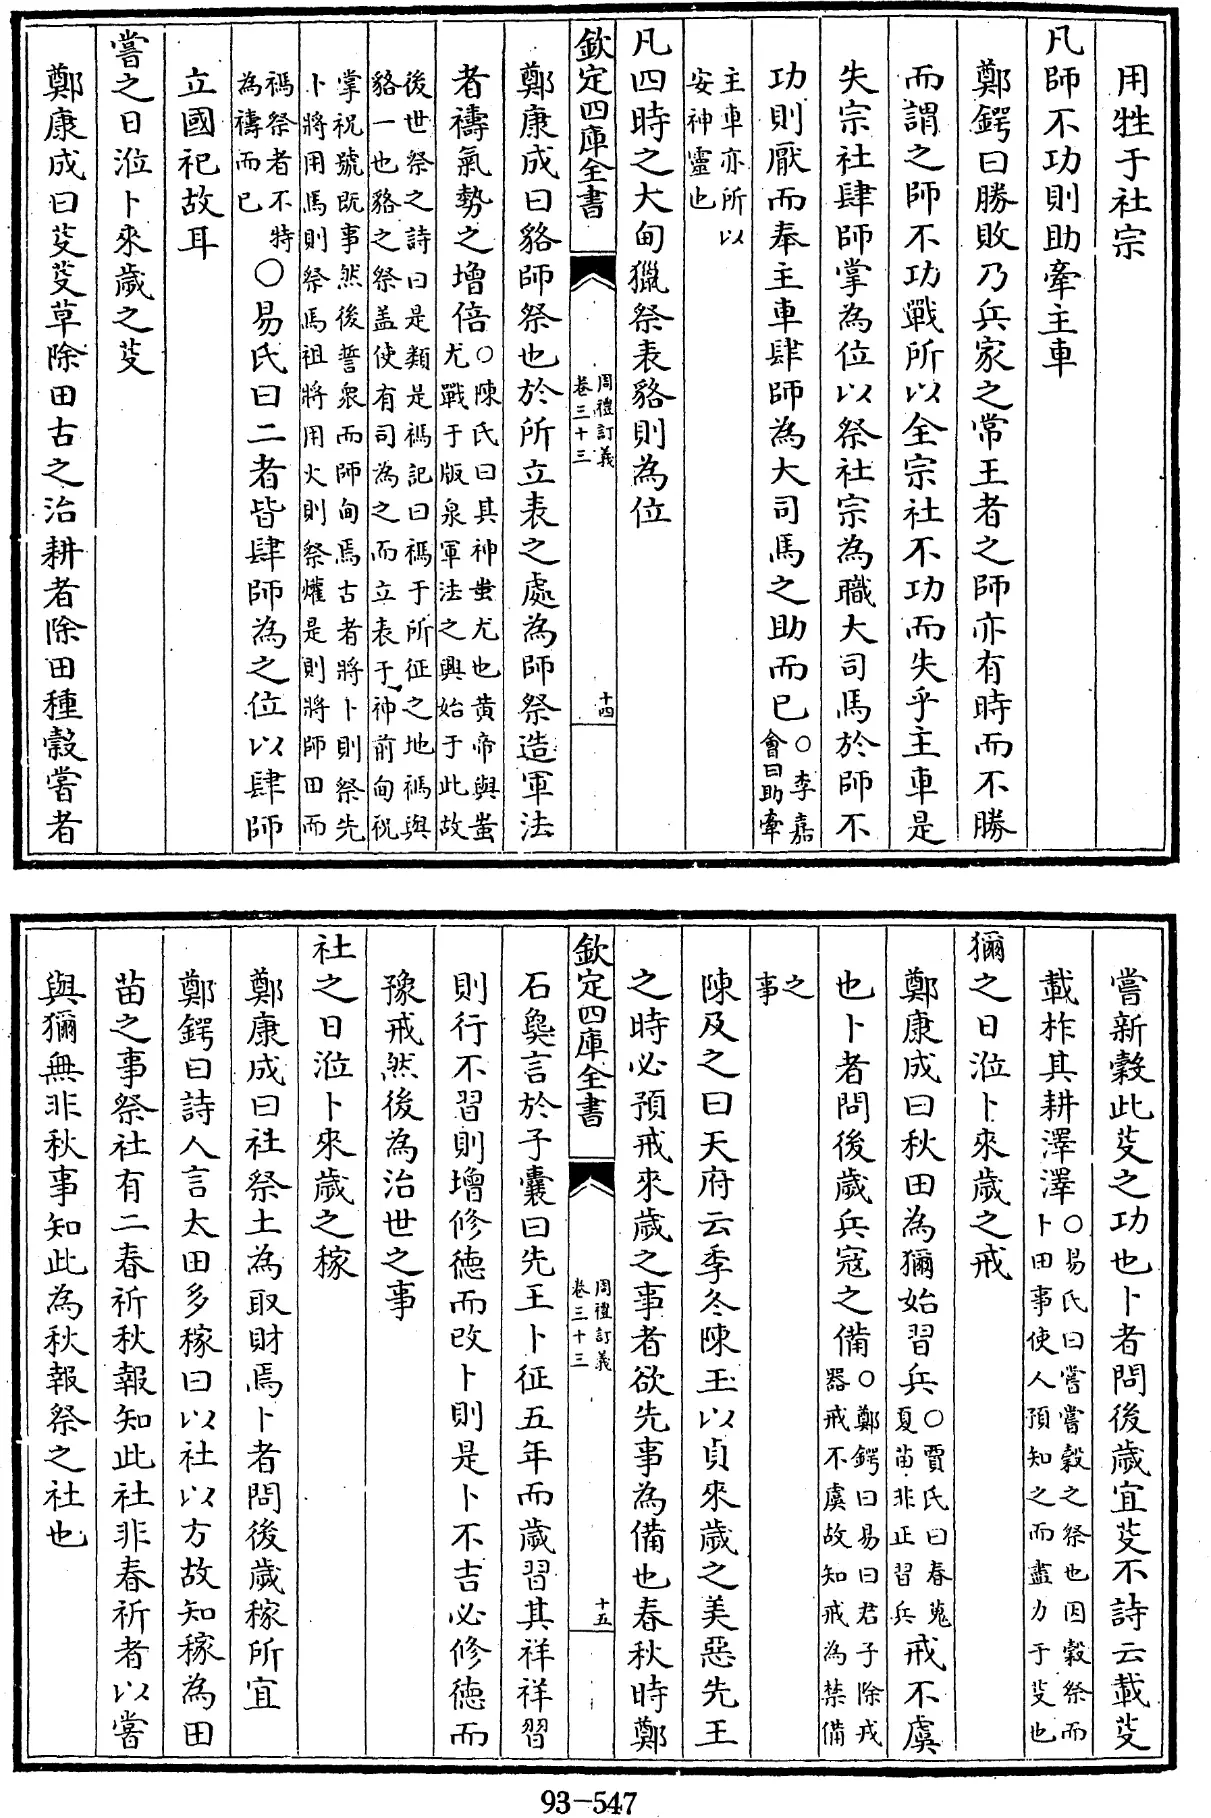 用牲于社宗
凡師不功則助牽主車
鄭鍔曰勝敗乃兵家之常王者之師亦有時而不勝
而謂之師不功戰所以全宗社不功而失乎主車是
失宗社肆師掌為位以祭社宗為職大司馬於師不
功則厭而奉主車肆師為大司馬之助而已○李嘉會曰助牽
主車亦所以安神靈也
凡四時之大甸獵祭表貉則為位
欽定四庫全書 周禮訂義 卷三十三 十四
鄭康成曰貉師祭也於所立表之處為師祭造軍法
者禱氣勢之增倍○陳氏曰其神蚩尤也黄帝與蚩尤戰于版泉軍法之興始于此故
後世祭之詩曰是類是禡記曰禡于所征之地禡與貉一也貉之祭盖使有司為之而立表于神前甸祝
掌祝號既事然後誓衆而師甸焉古者將卜則祭先卜將用馬則祭馬祖將用火則祭爟是則將師田而
禡祭者不特為禱而已○易氏曰二者皆肆師為之位以肆師
立國祀故耳
嘗之日涖卜來歲之芟
鄭康成曰芟芟草除田古之治耕者除田種穀嘗者
嘗新穀此芟之功也卜者問後歲宜芟不詩云載芟
載柞其耕澤澤○易氏曰嘗嘗穀之祭也因穀祭而卜田事使人預知之而盡力于芟也
獮之日涖卜來歲之戒
鄭康成曰秋田為獮始習兵○賈氏曰春蒐夏苗非正習兵戒不虞
也卜者問後歲兵寇之備○鄭鍔曰易曰君子除戎器戒不虞故知戒為禁備
之事
陳及之曰天府云季冬陳玉以貞來歲之美惡先王
之時必預戒來歲之事者欲先事為備也春秋時鄭
欽定四庫全書 周禮訂義 卷三十三 十五
石㚟言於子囊曰先王卜征五年而歲習其祥祥習
則行不習則增修德而改卜則是卜不吉必修德而
豫戒然後為治世之事
社之日涖卜來歲之稼
鄭康成曰社祭土為取財焉卜者問後歲稼所宜
鄭鍔曰詩人言太田多稼曰以社以方故知稼為田
苗之事祭社有二春祈秋報知此社非春祈者以嘗
與獮無非秋事知此為秋報祭之社也
93-547